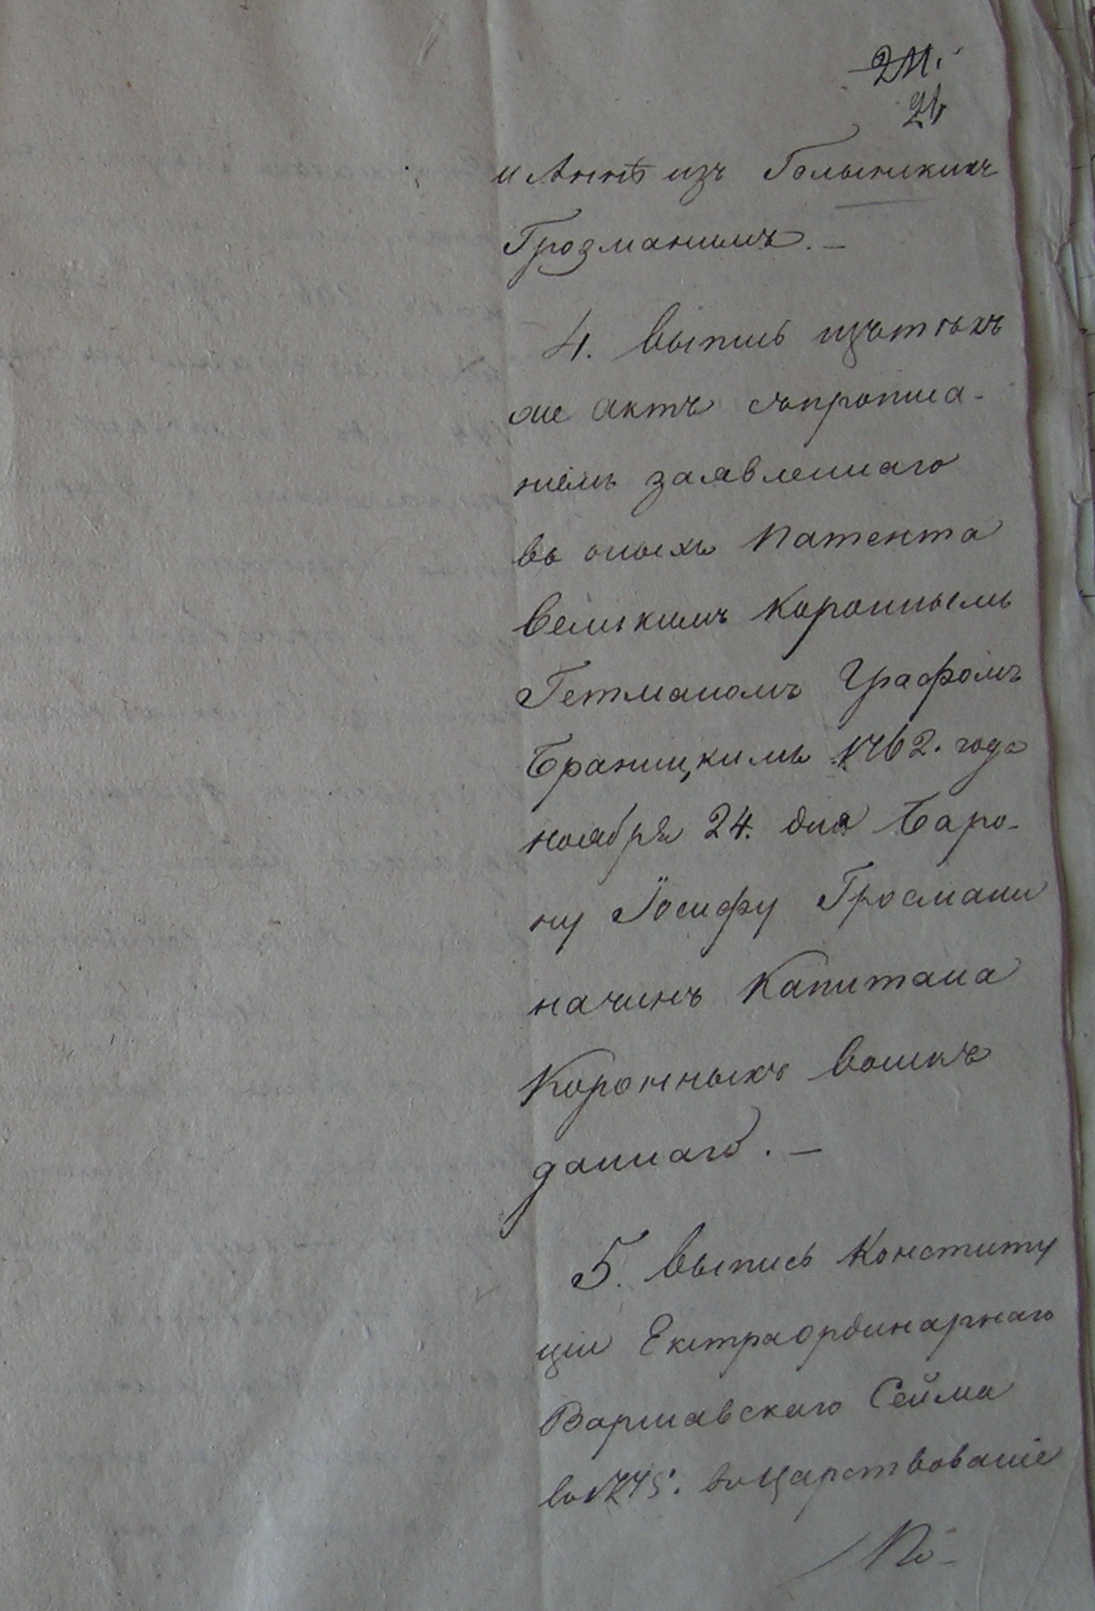 211.
26
и Аннѣ изъ Голынскихъ
Грозманимъ. —
4. Выпись изътѣхъ
же актъ съпрописа-
ніемъ заявленнаго
въ оныхъ Патента
Великимъ Короннымъ
Гетманомъ Графомъ
Браницкимъ 1762. года
ноября 24. дня Баро-
ну Іосифу Гросмани
начинъ Капитана
Коронныхъ Войскъ
даннаго. —
5. Выпись Конститу
ціи Екстраординарнаго
Варшавскаго Сейма
въ 1775: въ Царствованіе
По-